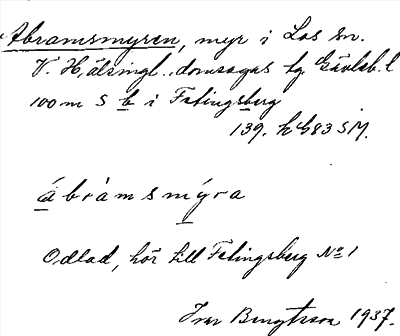 Abramsmyren, myr i Los sn.
V. Hälsingl. domsagas tg. Gävleb. l
100 m S b i Fetingsberg
139. h G83 SM.
ábràmsmýra
Odlad, hör till Fetingsberg No 1
Ivar Bengtsson 1937.